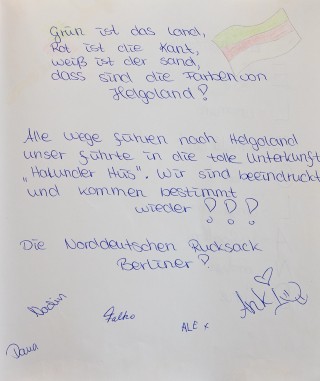 Grün ist das Land,
Rot ist die Kant,
weiß ist der Sand,
dass sind die Farben von
Helgoland!
Alle Wege führen nach Helgoland
unser führte in die tolle Unterkunft
„Hallunder Hüs". Wir sind beeindruckt
und kommen bestimmt
wieder!!!
Die Norddeutschen Rucksack
Berliner!
Falko
ALEX
Dana